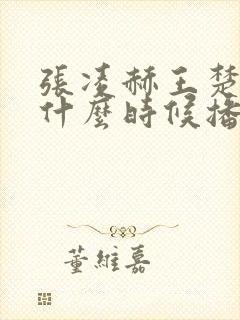 張凌赫王楚
什麼時候播
董維嘉